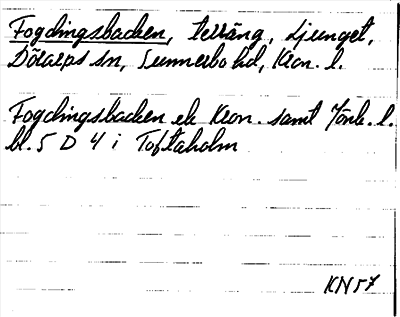 Fogdingsbacken, terräng, Ljunget,
Dörarps sn, Sunnerbo hd, Kron. l.
Fogdingsbacken ek Kron. samt Jönk. l.
bl. 5 D 4 i Toftaholm
KN 57